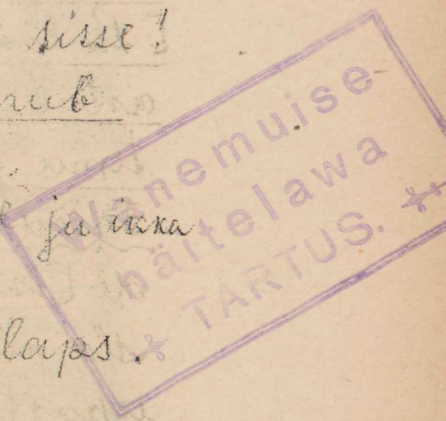 sisse!
rub
ju ikka
laps.
Wanemuise
näitelawa
TARTUS.